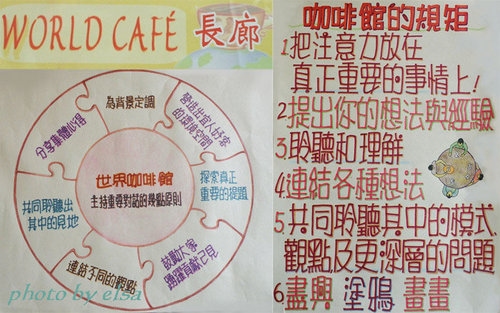 WORLD CAFÉ 長廊
為背景定調
營造出宜人好客
的環境空間
探索真正
重要的提題
鼓勵大家
踴躍貢獻己見
連結不同的觀點
共同聆聽出
其中的見地
分享集體心得
世界咖啡館
主持重要對話的幾點原則
photo by elsa
咖啡館的規矩
1.把注意力放在
真正重要的事情上!
2.提出你的想法與經驗
3.聆聽和理解
4.連結各種想法
5.共同聆聽其中的模式、
觀點,及更深層的問題
6.盡興 塗鴉 畫畫